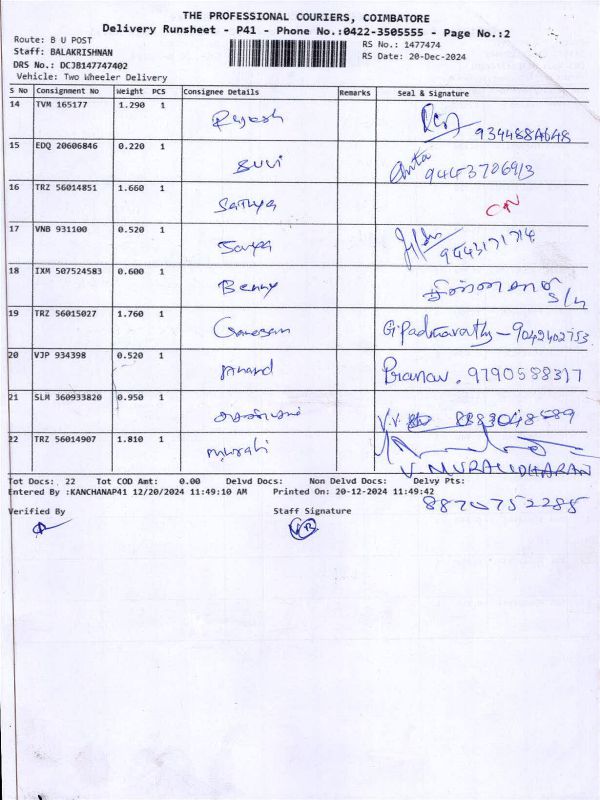 THE PROFESSIONAL COURIERS, COIMBATORE
Delivery Runsheet - P41 - Phone No.:0422-3505555 - Page No.:2
Route: B U POST
RS No.: 1477474
Staff: BALAKRISHNAN
RS Date: 20-Dec-2024
DRS No.: DCJB147747402
Vehicle: Two Wheeler Delivery
S No Consignment No Weight PCS Consignee Details Remarks Seal & Signature
14 TVM 165177 1.290 1 Rajesh
15 EDQ 20606846 0.220 1
16 TRZ 56014851 1.660 1 Sathya
17 VNB 931100 0.520 1
18 IXM 507524583 0.600 1 Benny
19 TRZ 56015027 1.760 1 Ganesan
20 VJP 934398 0.520 1 Anand Pranav. 9790588317
21 SLM 360933820 0.950 1
22 TRZ 56014907 1.810 1 Murali
V. MURALIDHARAN
8870752285
Tot Docs: 22 Tot COD Amt: 0.00 Delvd Docs: Non Delvd Docs: Delvy Pts:
Entered By :KANCHANAP41 12/20/2024 11:49:10 AM Printed On: 20-12-2024 11:49:42
Verified By Staff Signature